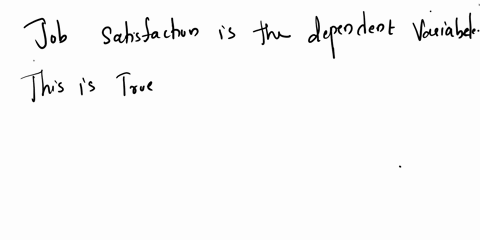 Job satisfaction is the dependent Variable.
This is True